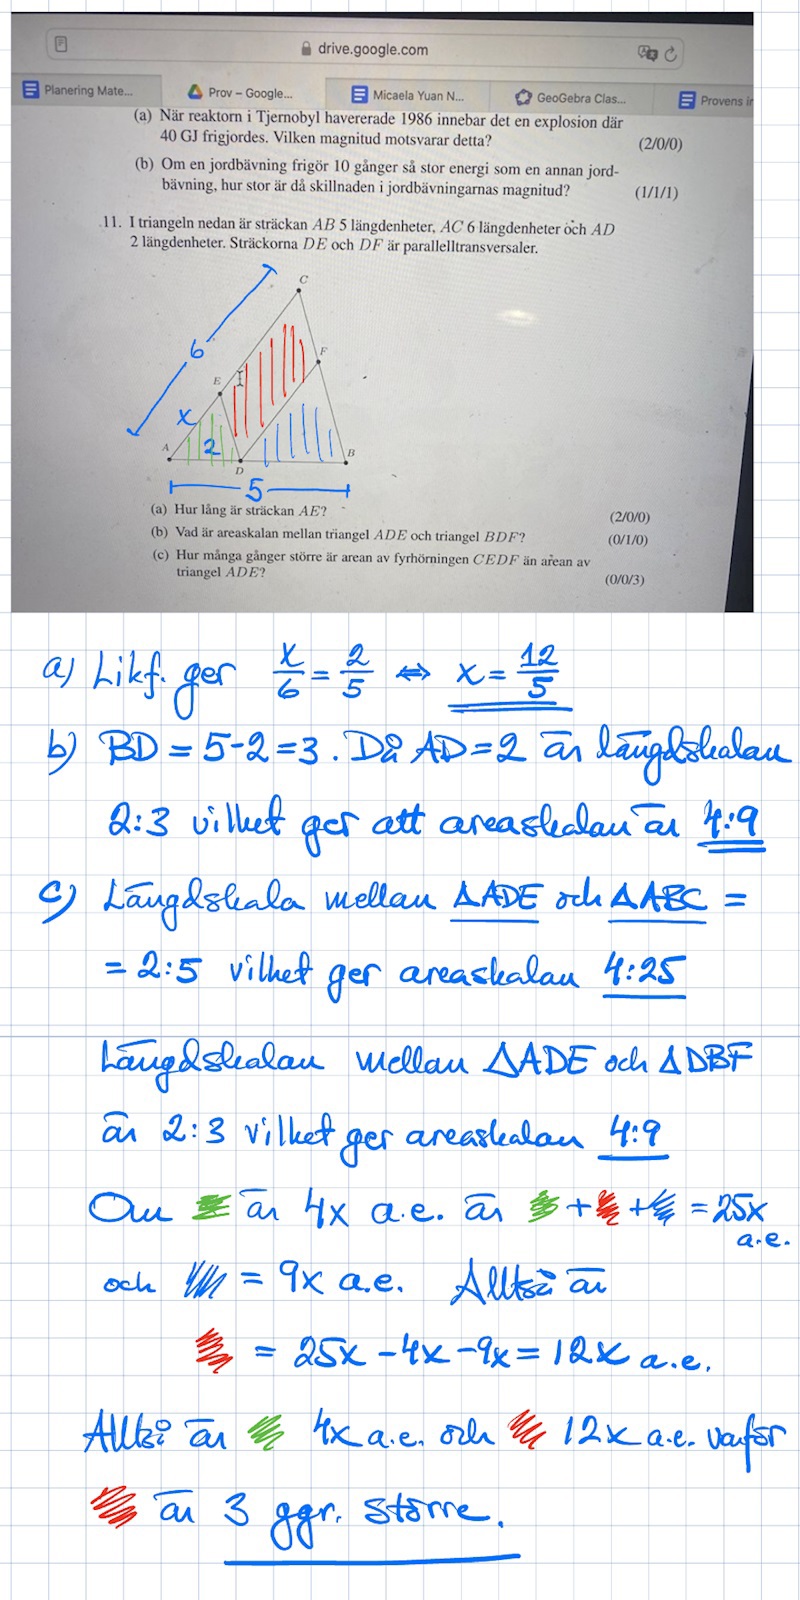 drive.google.com
Planering Mate... Prov – Google... Micaela Yuan N... GeoGebra Clas... Provens in
(a) När reaktorn i Tjernobyl havererade 1986 innebar det en explosion där
40 GJ frigjordes. Vilken magnitud motsvarar detta? (2/0/0)
(b) Om en jordbävning frigör 10 gånger så stor energi som en annan jord-
bävning, hur stor är då skillnaden i jordbävningarnas magnitud? (1/1/1)
11. I triangeln nedan är sträckan AB 5 längdenheter, AC 6 längdenheter och AD
2 längdenheter. Sträckorna DE och DF är parallelltransversaler.
C
6
F
E
x
A 2 B
D
5
(a) Hur lång är sträckan AE? (2/0/0)
(b) Vad är areaskalan mellan triangel ADE och triangel BDF? (0/1/0)
(c) Hur många gånger större är arean av fyrhörningen CEDF än arean av
triangel ADE? (0/0/3)
a) Likf. ger x/6 = 2/5 ⇔ x = 12/5
b) BD = 5-2 = 3. Då AD = 2 är längdskalan
2:3 vilket ger att areaskalan är 4:9
c) Längdskala mellan ΔADE och ΔABC =
= 2:5 vilket ger areaskalan 4:25
Längdskalan mellan ΔADE och ΔDBF
är 2:3 vilket ger areaskalan 4:9
Om är 4x a.e. är + + = 25x
a.e.
och = 9x a.e. Alltså är
= 25x - 4x - 9x = 12x a.e.
Alltså är 4x a.e. och 12x a.e. varför
är 3 ggr. större.